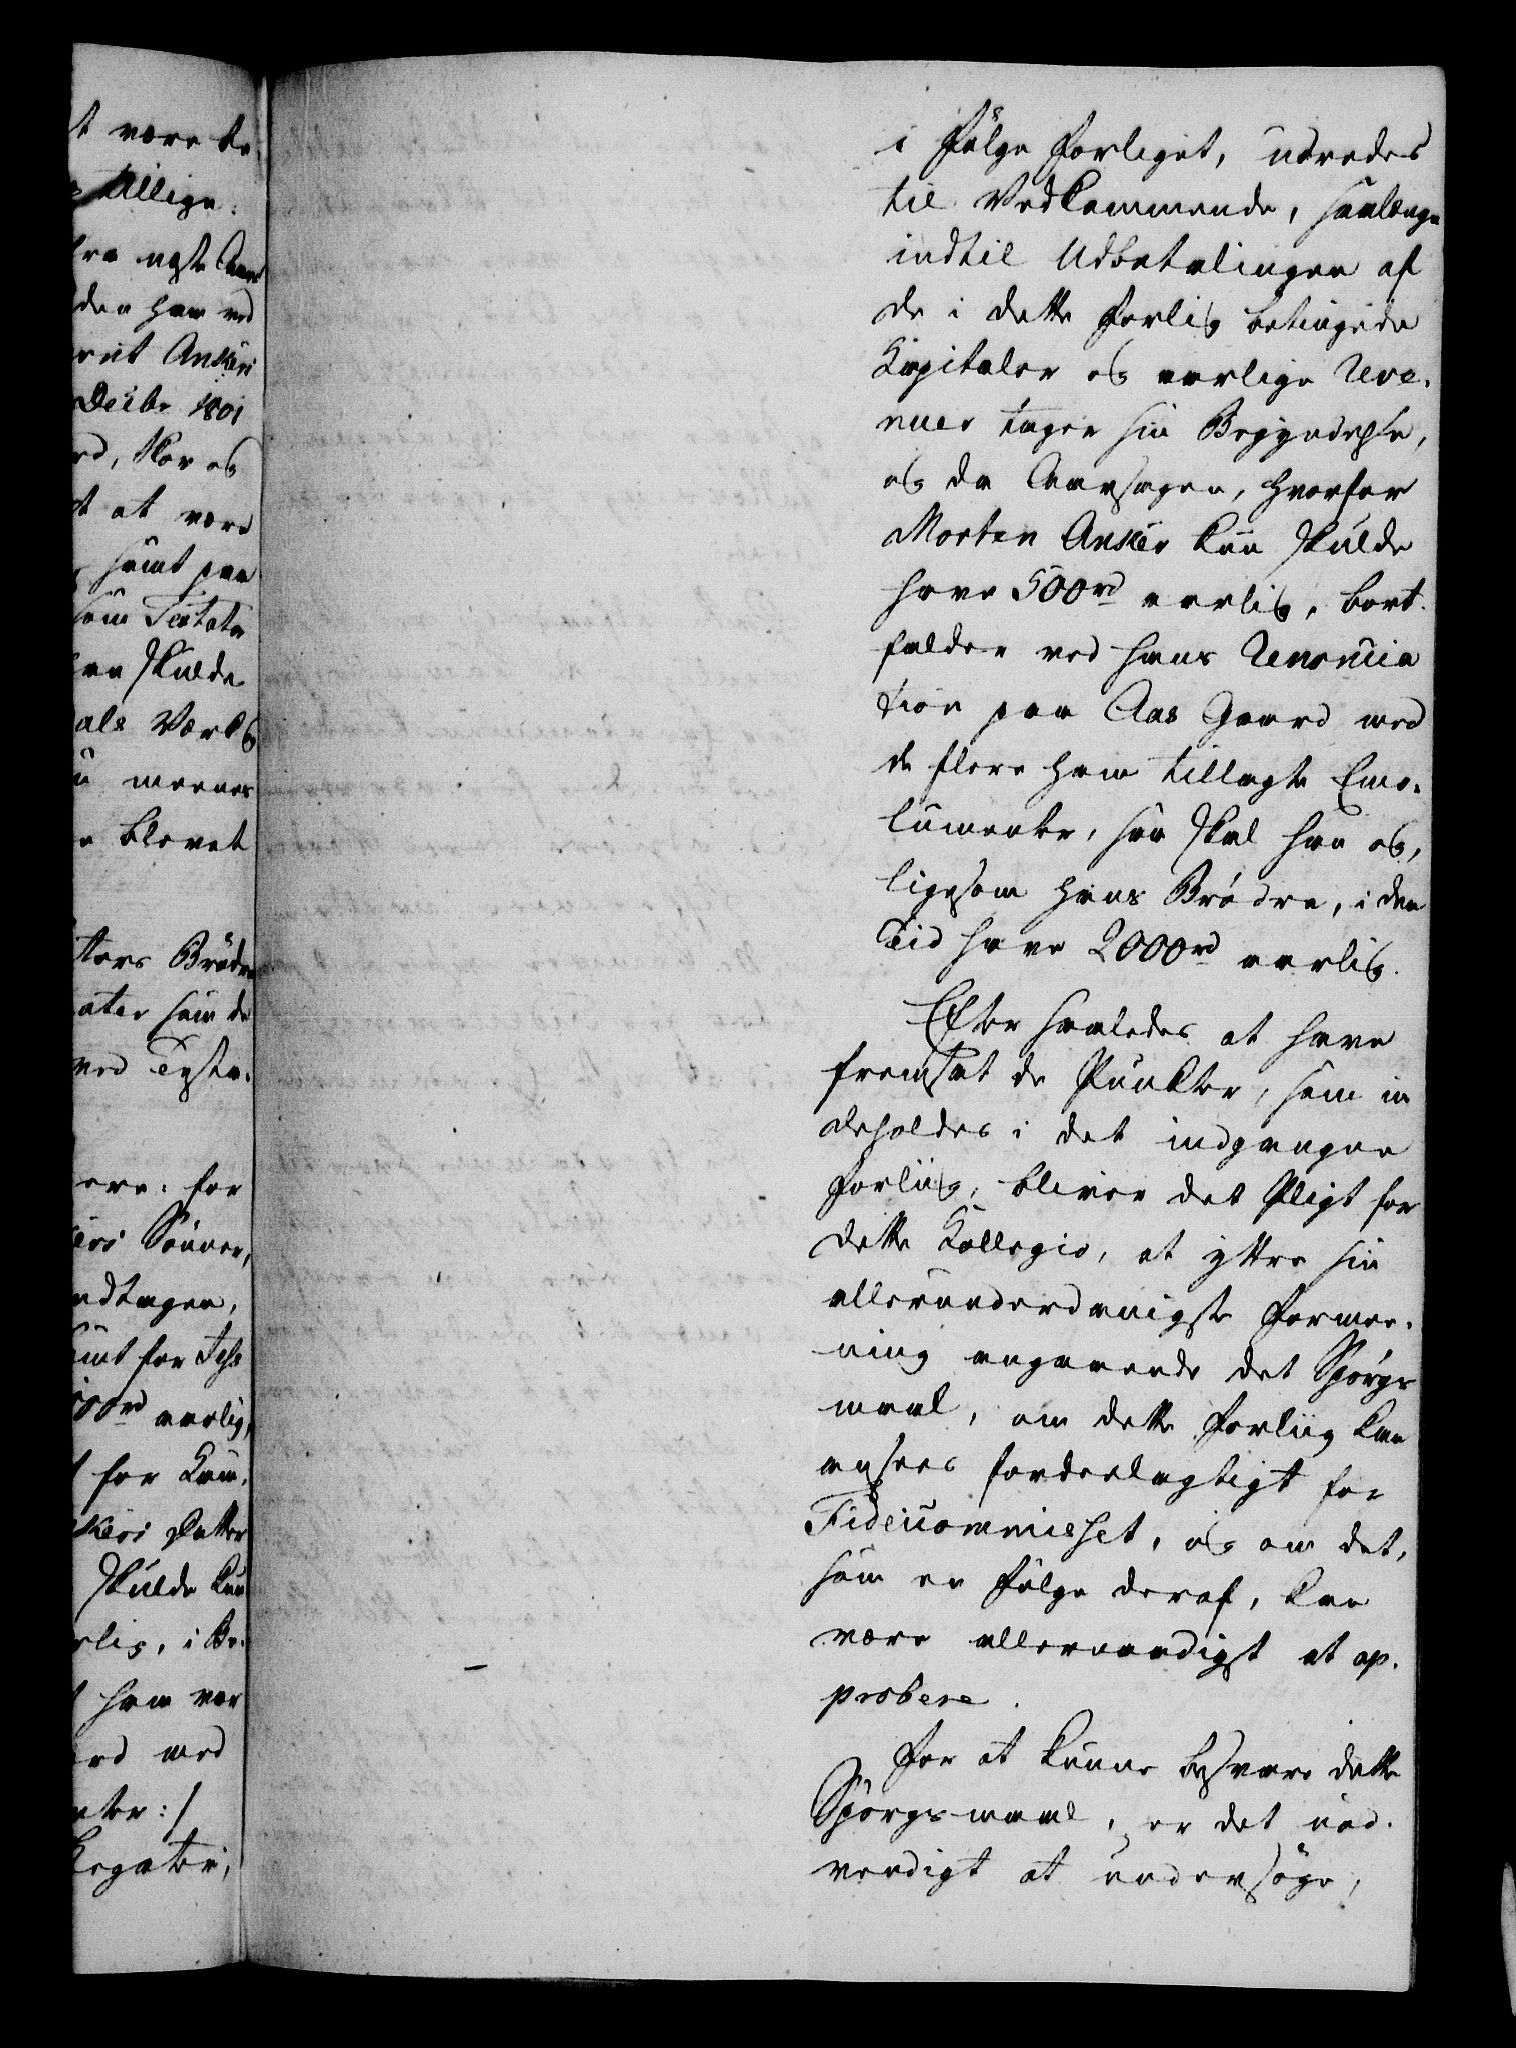 t være be
tillige
fra næste Aars
den ham ved
ernt Ankers
Decbr 1801
rd, Kor og
t at være
samt paa
som Testata
an skulde
als Værks
meenes
e blevet
ters Brødre
ater som de
ved Testa-
ere: for
kers Sønner,
ndtagen,
samt for Jess
500rd aarlig,
for Kam-
nkers Datter
skulde kun
rlig, i Be-
ham var
ard med
nter:/
Legater,
i Følge Forliget, udredes
til Vedkommende, saalænge
indtil Udbetalingen af
de i dette Forlig betingede
Kapitaler og aarlige Reve-
nuer tager sin Begyndelse,
og da Aarsagen, hvorfor
Morten Anker kun skulde
have 500rd aarlig, bort-
falder ved hans Renoncia
tion paa Aas Gaard med
de flere ham tillagte Emo-
lumenter, saa skal han og,
ligesom hans Brødre, i den
Tid have 2000rd aarlig.
Efter saaledes at have
fremsat de Punkter, som in
deholdes i det indgangne
Forliig, bliver det Pligt for
dette Kollegio, at yttre sin
allerunderdanigste Formee-
ning angaaende det Spørgs
maal, om dette Forliig kan
ansees fordeelagtigt for
Fideicommisset, og om det,
som en Følge deraf, kan
være allernaadigst at ap-
probere.
For at kunne besvare dette
Spørgsmaal, er det nød-
vendigt at undersøge,